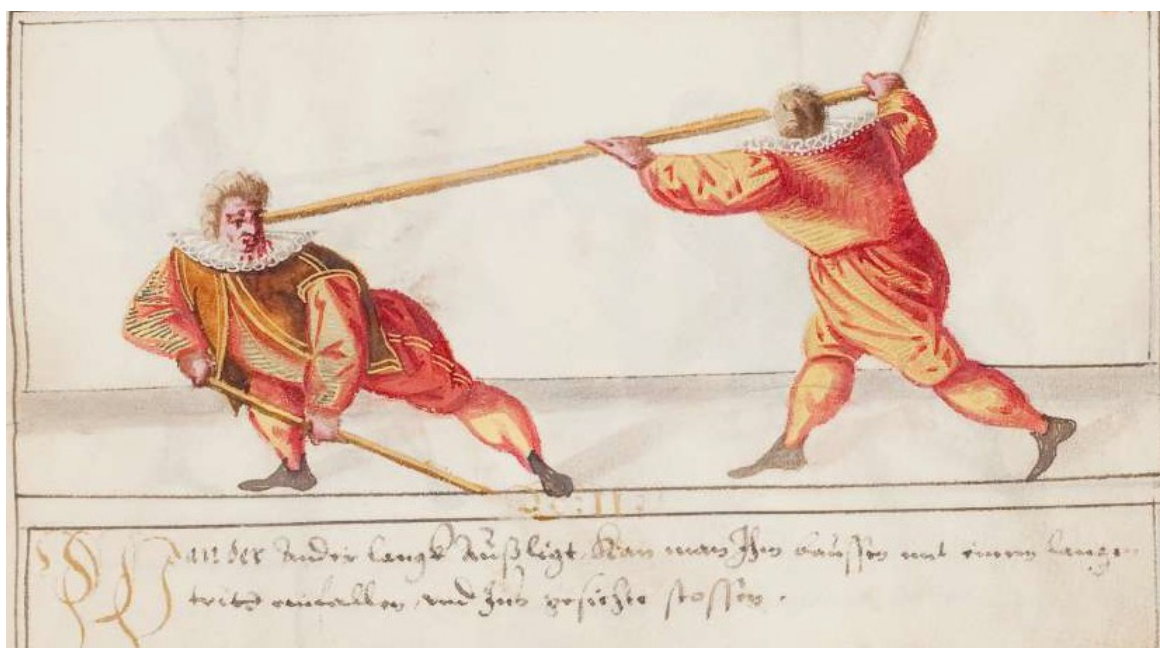 Wan der Ander langk Außligt, Kan man Ihm daussen mit einem langen
tritt einfallen, vnd Ins gesichte stossen.